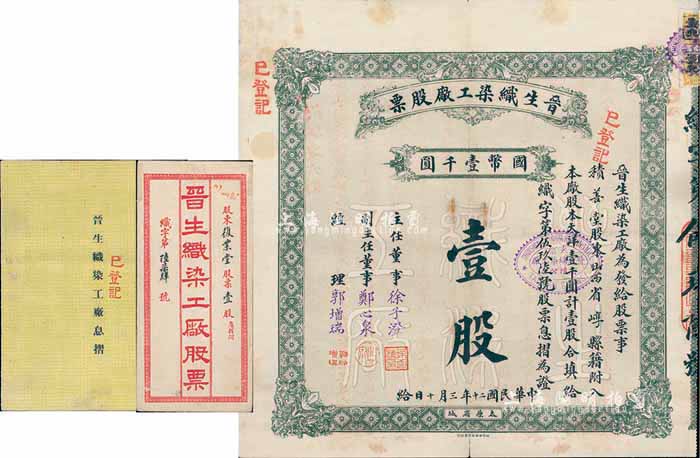 晉生織染工廠股票
國幣壹千圓
壹股
晉生織染工廠為發給股票事
積善堂股東山西省崞縣籍附入
本廠股本大洋壹千圓計壹股合填給
織字第伍玖陸號股票息摺為證
主任董事 徐子澄
副主任董事 鄭心泉
經理 郭增瑞
中華民國二十年三月十日給
太原省城
已登記
已登記
股東復業堂股票壹股
晉生織染工廠股票
織字第
號
已登記
晉生織染工廠息摺